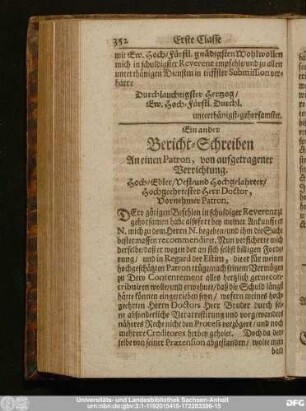 352 Erste Classe
mit Ew. Hoch-Fürstl. gnädigsten Wohlwollen
mich in schuldigster Reverenz empfehle und zu allen
unterthänigen Diensten in tieffster Submission ver-
harre
Durchlauchtigster Hertzog,
Ew. Hoch-Fürstl. Durchl.
unterthänigst-gehorsamster.
Ein ander
Bericht-Schreiben
An einen Patron, von aufgetragener
Verrichtung.
Hoch-Edler, Vest- und Hochgelahrter,
Hochgeehrtester Herr Doctor,
Vornehmer Patron,
Dero gütigen Befehlen in schuldiger Reverentz
gehorsamen habe alsofort bey meiner Ankunfft in
N. mich zu dem Herrn N. begeben, und ihm die Sache
bester massen recommendiret. Nun versicherte mich
derselbe, daß er wegen der an sich selbst billigen Forde-
rung, und in Regard der Estim, die er für meinen
hochgeschätzten Patron trüge, nach seinem Vermögen
zu Dero Contentement alles hertzlich gerne con-
tribuiren wolle, und erwehnte, daß die Schuld längst
hätte können eingetrieben seyn, woferne meines hoch-
geehrten Herrn Doctors Herr Bruder durch seine
absonderliche Veranstaltung und vorgewandes
näheres Recht nicht den Proceß verzögert, und noch
mehrere Creditores herbey geholet. Doch da der-
selbe von seiner Prætension abgestanden, wolte man
bald
Universitäts- und Landesbibliothek Sachsen-Anhalt
urn:nbn:de:gbv:3:1-1192015415-172283396-15